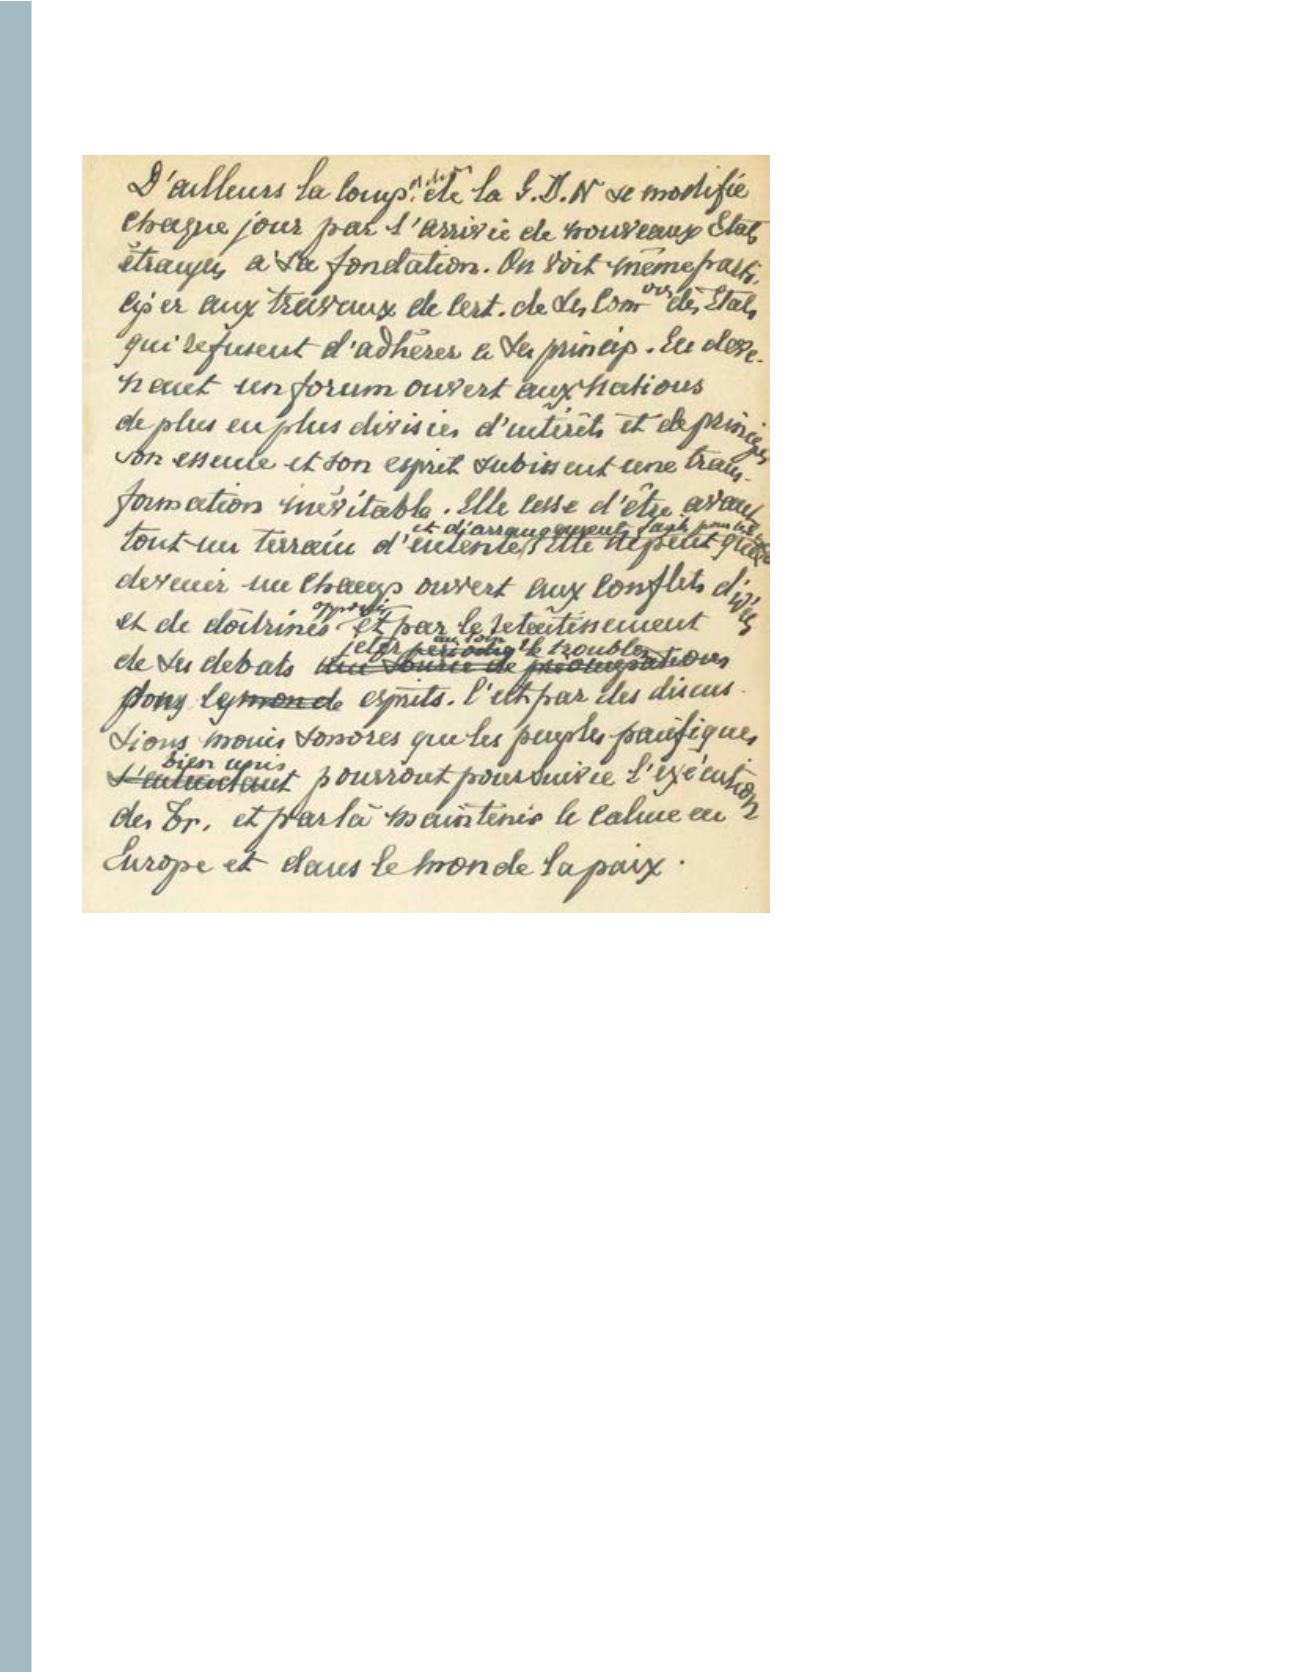 D'ailleurs la comp. de la S.D.N se modifie
chaque jour par l'arrivée de nouveaux Etats
étrangers a sa fondation. On voit même parti-
ciper aux travaux de cert. de ses Com ons des Etats
qui refusent d'adhérer a ses princip. En deve-
nant un forum ouvert aux nations
de plus en plus divisées d'intérêts et de principes
son essence et son esprit subissent une trans-
formation inévitable. Elle cesse d'être avant
et d'arrangements
tout un terrain d'entente, Elle ne peut que
devenir un champ ouvert aux conflits d'idées
opposées
et de doctrines et par le retentissement
jeter au loin le trouble
de ses debats une source de préoccupations
dans les monde esprits. C'est par des discus-
sions moins sonores que les peuples pacifiques
bien unis
s'entendant pourront poursuivre l'exécution
des Tr. et par là maintenir le calme en
Europe et dans le monde la paix.